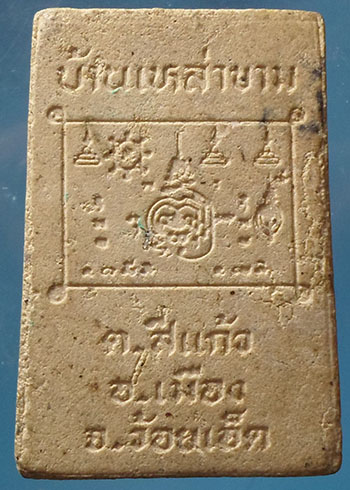 บ้านเหล่าขาม
ต.สีแก้ว
อ.เมือง
จ.ร้อยเอ็ด